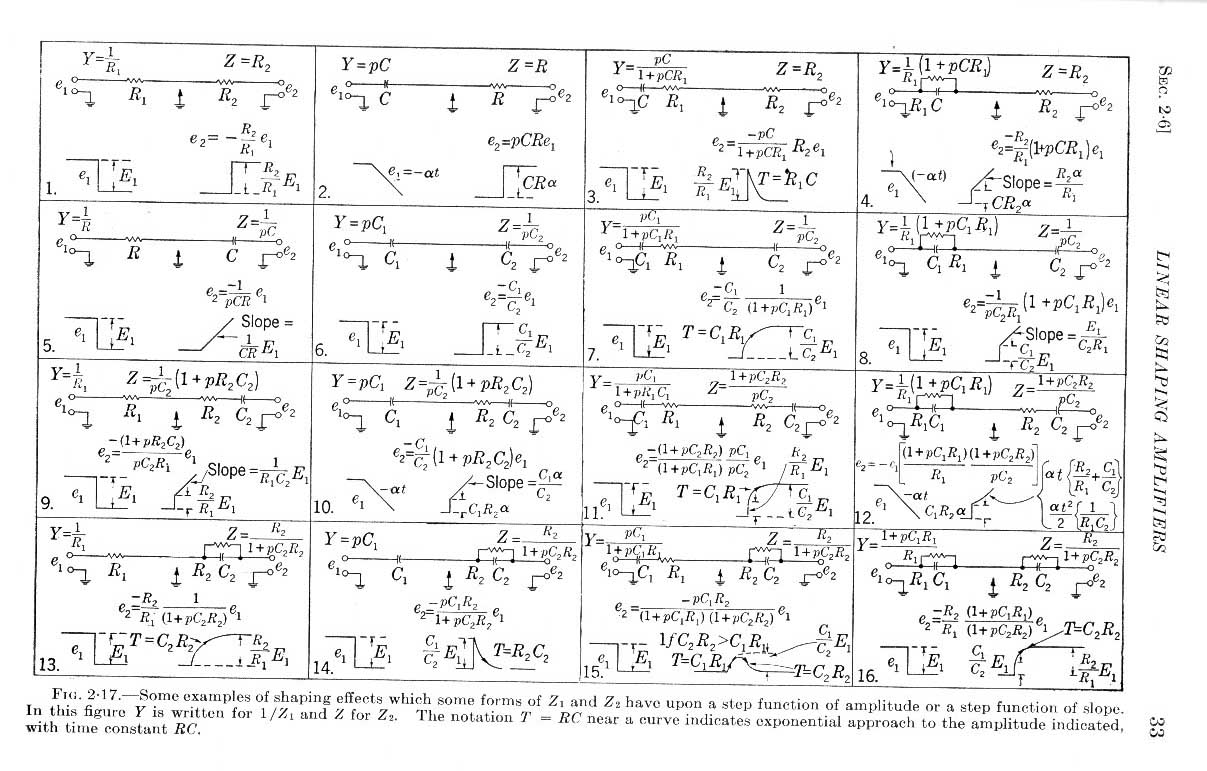 SEC. 2·6]
LINEAR SHAPING AMPLIFIERS
33
Y=1/R₁ Z=R₂
e₁ R₁ R₂ e₂
e₂= −R₂/R₁ e₁
e₁ E₁ R₂/R₁ E₁
1.
Y=pC Z=R
e₁ C R e₂
e₂=pCRe₁
e₁=−αt CRα
2.
Y=pC/1+pCR₁ Z=R₂
e₁ C R₁ R₂ e₂
e₂=−pC/1+pCR₁ R₂e₁
e₁ E₁ R₂/R₁ E₁ T=R₁C
3.
Y=1/R₁(1+pCR₁) Z=R₂
e₁ R₁C R₂ e₂
e₂=−R₂/R₁(1+pCR₁)e₁
e₁ (−αt) Slope=R₂α/R₁
CR₂α
4.
Y=1/R Z=1/pC
e₁ R C e₂
e₂=−1/pCR e₁
e₁ E₁ Slope = 1/CR E₁
5.
Y=pC₁ Z=1/pC₂
e₁ C₁ C₂ e₂
e₂=−C₁/C₂ e₁
e₁ E₁ C₁/C₂ E₁
6.
Y=pC₁/1+pC₁R₁ Z=1/pC₂
e₁ C₁ R₁ C₂ e₂
e₂=−C₁/C₂ 1/(1+pC₁R₁) e₁
e₁ E₁ T=C₁R₁ C₁/C₂ E₁
7.
Y=1/R₁(1+pC₁R₁) Z=1/pC₂
e₁ C₁ R₁ C₂ e₂
e₂=−1/pC₂R₁ (1+pC₁R₁)e₁
e₁ E₁ Slope=E₁/C₂R₁
C₁/C₂ E₁
8.
Y=1/R₁ Z=1/pC₂(1+pR₂C₂)
e₁ R₁ R₂ C₂ e₂
e₂=−(1+pR₂C₂)/pC₂R₁ e₁
e₁ E₁ Slope=1/R₁C₂ E₁
R₂/R₁ E₁
9.
Y=pC₁ Z=1/pC₂(1+pR₂C₂)
e₁ C₁ R₂ C₂ e₂
e₂=−C₁/C₂(1+pR₂C₂)e₁
e₁ −αt Slope=C₁α/C₂
C₁R₂α
10.
Y=pC₁/1+pR₁C₁ Z=1+pC₂R₂/pC₂
e₁ C₁ R₁ R₂ C₂ e₂
e₂=−(1+pC₂R₂)/(1+pC₁R₁) pC₁/pC₂ e₁
R₂/R₁ E₁
e₁ E₁ T=C₁R₁ C₁/C₂ E₁
11.
Y=1/R₁(1+pC₁R₁) Z=1+pC₂R₂/pC₂
e₁ R₁C₁ R₂ C₂ e₂
e₂=−e₁[(1+pC₁R₁)(1+pC₂R₂)/R₁ pC₂]
αt{R₂/R₁+C₁/C₂}
αt²/2{1/R₁C₂}
e₁ −αt C₁R₂α
12.
Y=1/R₁ Z=R₂/1+pC₂R₂
e₁ R₁ R₂ C₂ e₂
e₂=−R₂/R₁ 1/(1+pC₂R₂) e₁
e₁ E₁ T=C₂R₂ R₂/R₁ E₁
13.
Y=pC₁ Z=R₂/1+pC₂R₂
e₁ C₁ R₂ C₂ e₂
e₂=−pC₁R₂/1+pC₂R₂ e₁
e₁ E₁ C₁/C₂ E₁ T=R₂C₂
14.
Y=pC₁/1+pC₁R₁ Z=R₂/1+pC₂R₂
e₁ C₁ R₁ R₂ C₂ e₂
e₂=−pC₁R₂/(1+pC₁R₁)(1+pC₂R₂) e₁
If C₂R₂>C₁R₁ C₁/C₂ E₁
e₁ E₁ T=C₁R₁ T=C₂R₂
15.
Y=1+pC₁R₁/R₁ Z=R₂/1+pC₂R₂
e₁ R₁ C₁ R₂ C₂ e₂
e₂=−R₂/R₁ (1+pC₁R₁)/(1+pC₂R₂) e₁
T=C₂R₂
e₁ E₁ C₁/C₂ E₁ R₂/R₁ E₁
16.
FIG. 2·17.—Some examples of shaping effects which some forms of Z₁ and Z₂ have upon a step function of amplitude or a step function of slope.
In this figure Y is written for 1/Z₁ and Z for Z₂. The notation T = RC near a curve indicates exponential approach to the amplitude indicated,
with time constant RC.